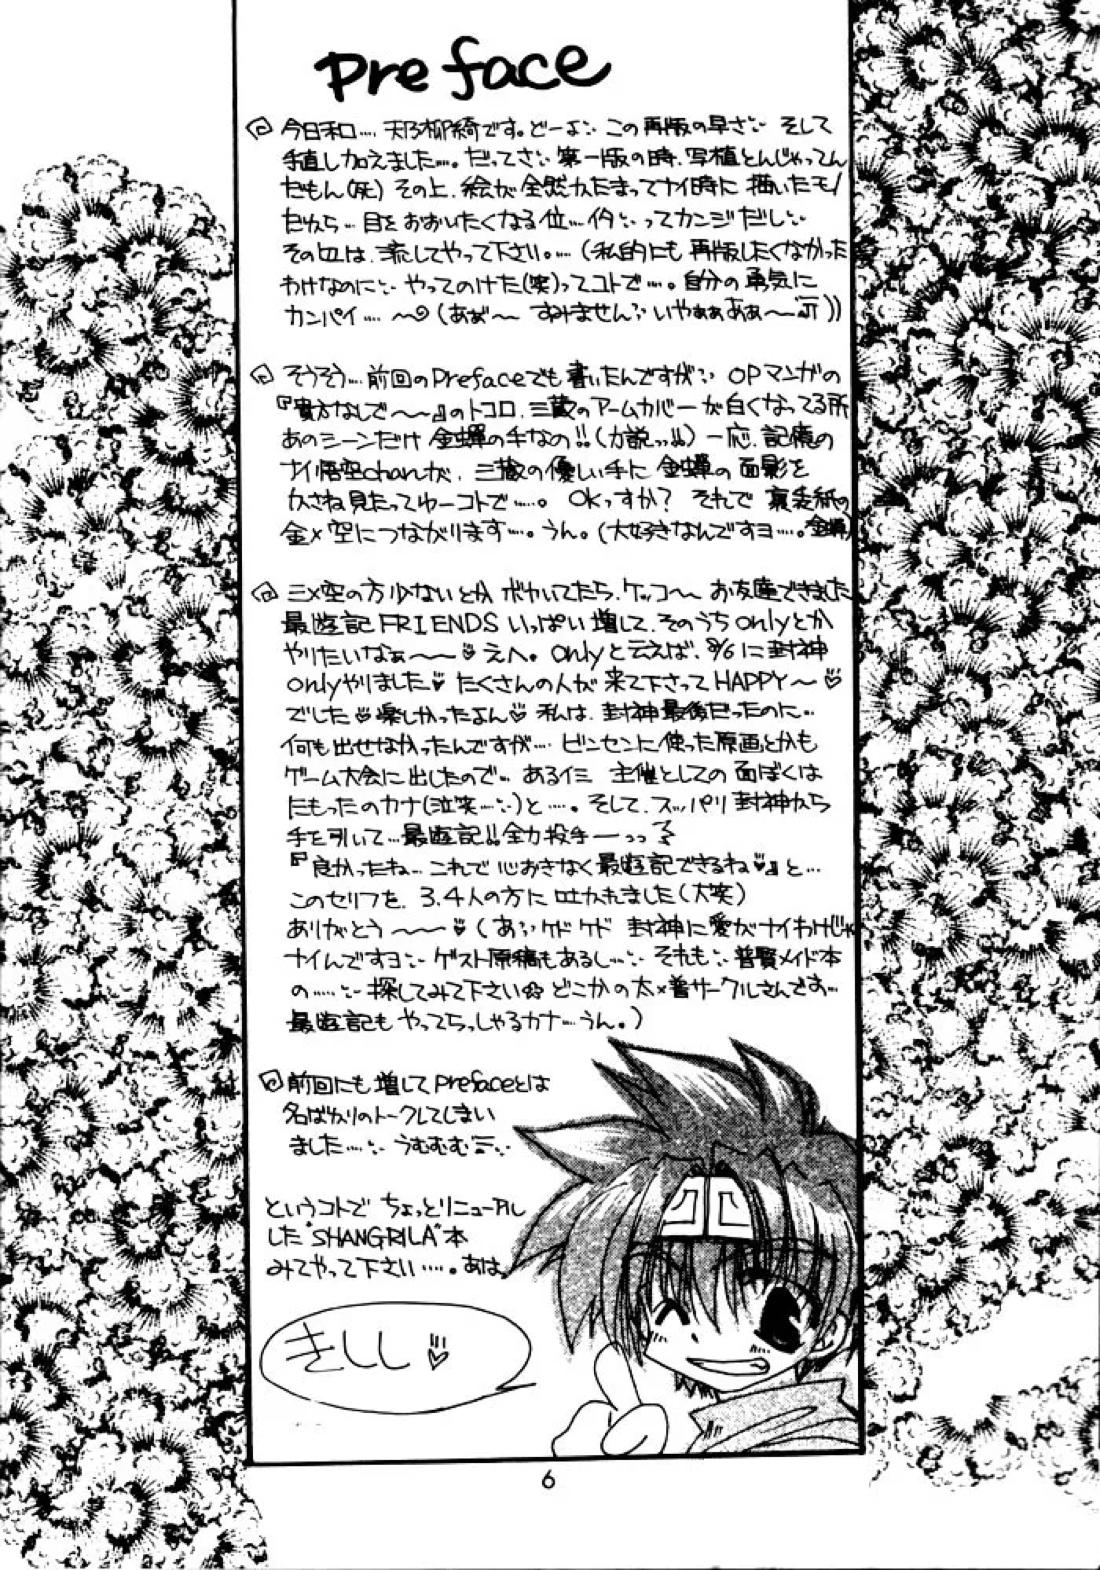 Preface
今日和‥‥ 耶柳綺です。どーよ‥ この再版の早さ‥ そして
手直し加えました‥‥。だってさ‥ 第一版の時、写植とんじゃってん
だもん(死) その上、絵が全然かたまってナイ時に描いたモノ
だから‥ 目をおおいたくなる位‥‥ ‥ってカンジだし‥
その辺は、流してやって下さい。‥‥(私的にも再版したくなかった
わけなのに‥ やってのけた(笑)ってコトで‥‥。自分の勇気に
カンパイ‥‥ 〜(あぁ〜〜 すみません‥ いやぁぁあぁ〜〜))
そうそう‥‥前回のPrefaceでも書いたんですが‥ OPマンガの
『貴方なしで〜〜』のトコロ、三蔵のアームカバーが白くなってる所
あのシーンだけ 金蝉の手なの!!(力説っっ!!) 一応、記憶の
ナイ悟空chanが、三蔵の優しい手に 金蝉の面影を
かさね見たってゆーコトで‥‥。OKっすか? それで 裏表紙の
金×空につながります‥‥。うん。(大好きなんですヨ‥‥。金蝉)
三×空の方少ないとかボヤいてたら、ケッコ〜〜 お友達できました
最遊記FRIENDS いっぱい増して、そのうちonlyとか
やりたいなぁ〜〜♥ えへ。onlyと云えば、8/6に封神
onlyやりました♥ たくさんの人が来て下さってHAPPY〜♥
でした♥楽しかったよん♥ 私は、封神最後だったのに‥
何も出せなかったんですが‥‥ ビンセンに使った原画とかも
ゲーム大会に出したので‥ あるイミ 主催としての面ぼくは
たもったのカナ(泣笑‥‥)と‥‥。そして、スッパリ封神から
手を引いて‥‥最遊記!!全力投手ーっっ
『良かったね‥‥これで心おきなく最遊記できるね♥』と‥‥
このセリフを、3、4人の方に吐かれました(大笑)
ありがとう〜〜〜♥(あ‥ケドケド 封神に愛がナイわけじゃ
ナイんですヨ‥ ゲスト原稿もあるし‥‥ それも‥普賢メイド本
の‥‥‥ 探してみて下さい☆ どこかの太×普サークルさんです‥‥
最遊記もやってらっしゃるカナ‥‥うん。)
前回にも増してprefaceとは
名ばかりのトークしてしまい
ました‥‥‥ うむむむ‥
というコトで ちょっとリニューアル
した"SHANGRILA"本
みてやって下さい‥‥。あは。
きししし♥
6